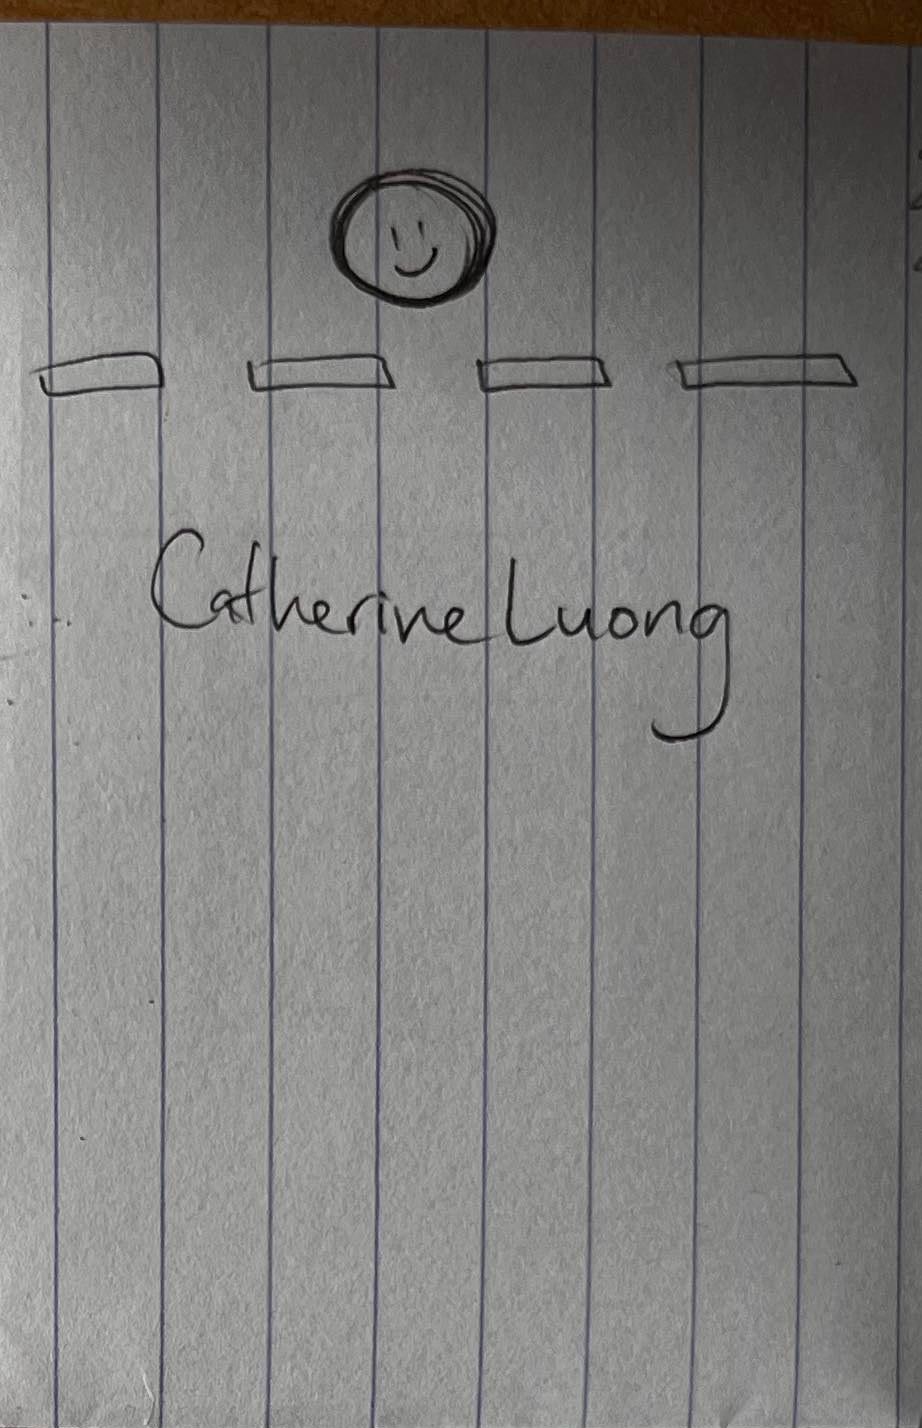 Catherine Luong